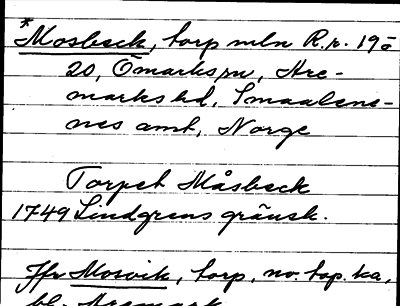 *Mosbeck, torp mln R.r. 19 o
20, Ömarks sn, Are-
marks hd, Smaalene-
nes amt, Norge
Torpet Måsbeck
1749 Lindgrens gränsk.
Jfr Mosvik, torp, no. top. ka,
bl. Aremark